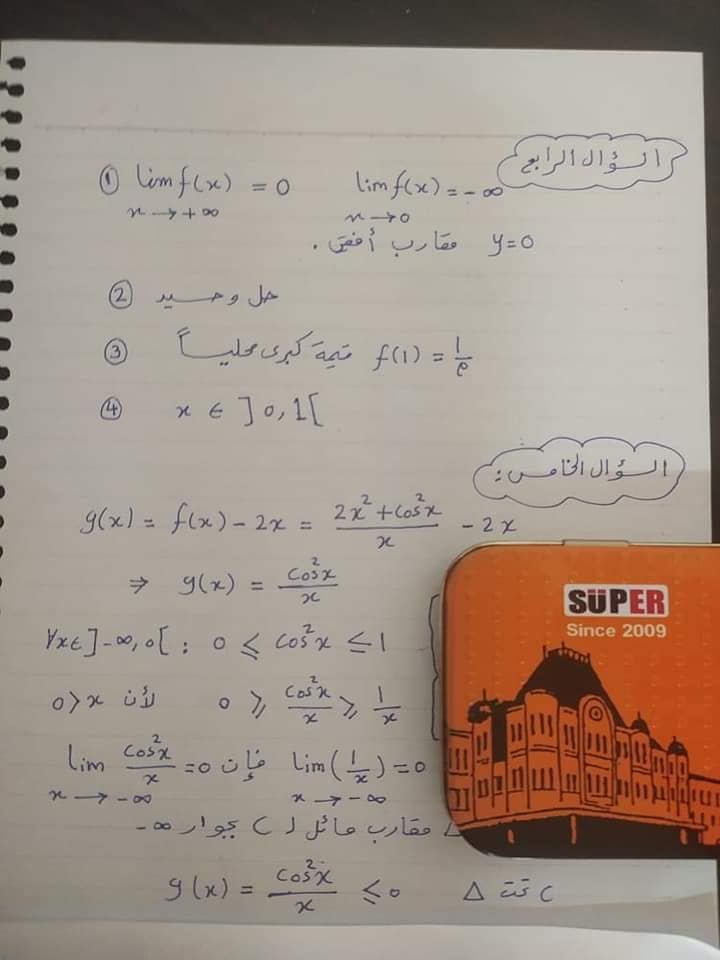 السؤال الرابع
① lim f(x) = 0 lim f(x) = -∞
x → +∞ x → 0
y=0 مقارب أفقي .
② حل وحيد
③ f(1) = 1/e قيمة كبرى محلياً
④ x ∈ ]0,1[
السؤال الخامس :
g(x) = f(x) - 2x = (2x² + cos²x)/x - 2x
⇒ g(x) = cos²x/x
∀x∈]-∞,0[ : 0 ≤ cos²x ≤ 1
0 ≥ cos²x/x ≥ 1/x لأن x<0
lim (1/x) = 0 فإن lim cos²x/x = 0
x → -∞ x → -∞
Δ مقارب مائل لـ C بجوار -∞
g(x) = cos²x/x ≤ 0 C تحت Δ
SÜPER
Since 2009